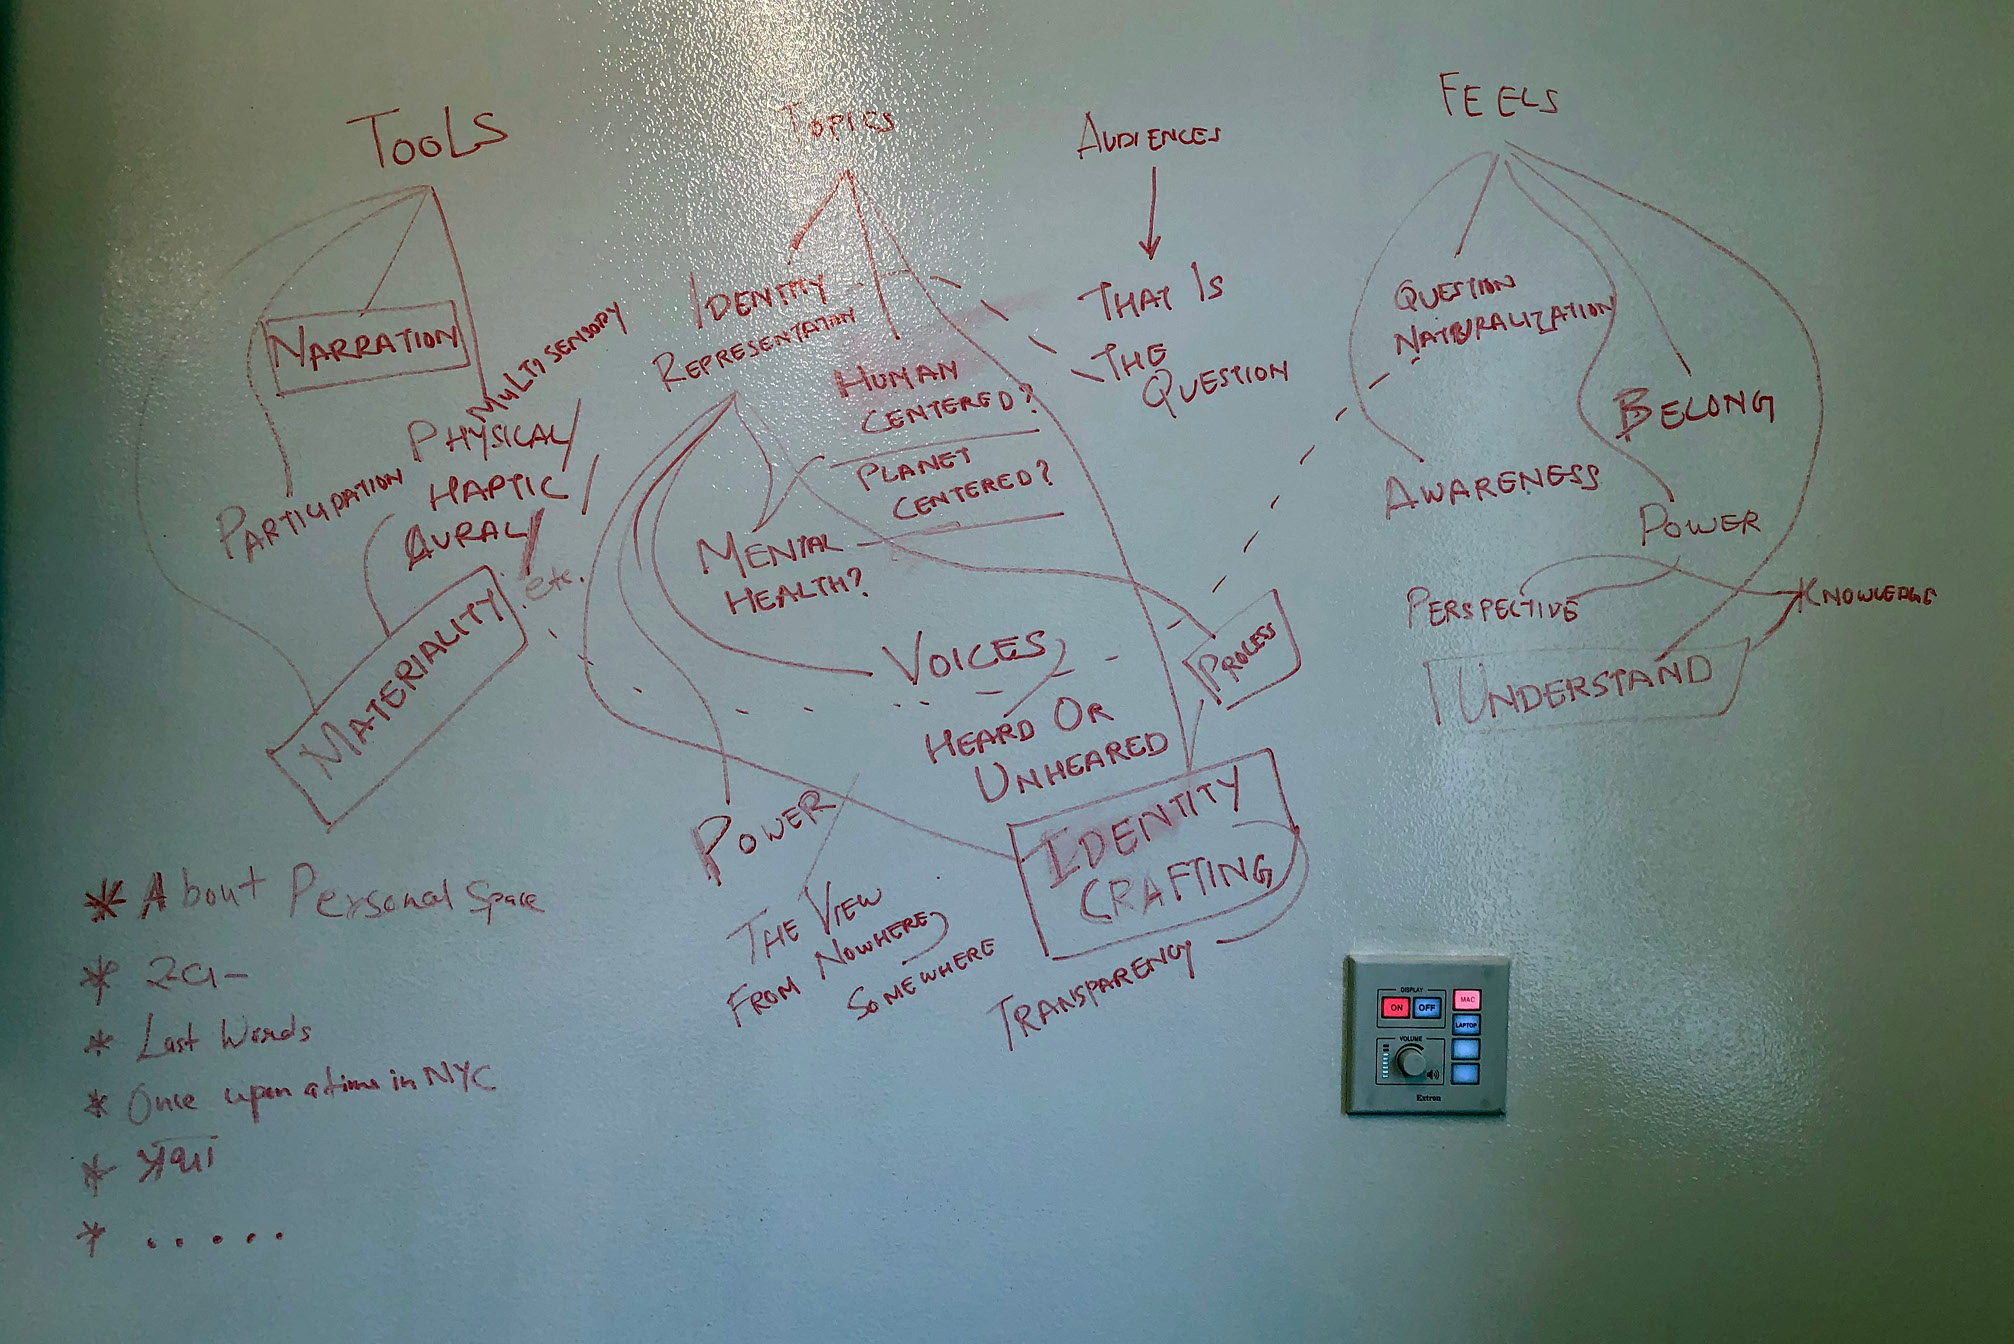 TOOLS
NARRATION
MULTISENSORY
PHYSICAL/
PARTICIPATION
HAPTIC/
AURAL/
etc.
MATERIALITY
TOPICS
IDENTITY
REPRESENTATION
HUMAN
CENTERED?
PLANET
CENTERED?
MENTAL
HEALTH?
VOICES
HEARD OR
UNHEARD
PROCESS
POWER
THE VIEW
FROM NOWHERE
SOMEWHERE
IDENTITY
CRAFTING
TRANSPARENCY
AUDIENCES
THAT IS
THE
QUESTION
FEELS
QUESTION
NATURALIZATION
BELONG
AWARENESS
POWER
PERSPECTIVE
KNOWLEDGE
UNDERSTAND
* About Personal Space
*
* Last Words
* Once upon a time in NYC
*
* .....
DISPLAY
ON OFF
MAC
LAPTOP
VOLUME
Extron